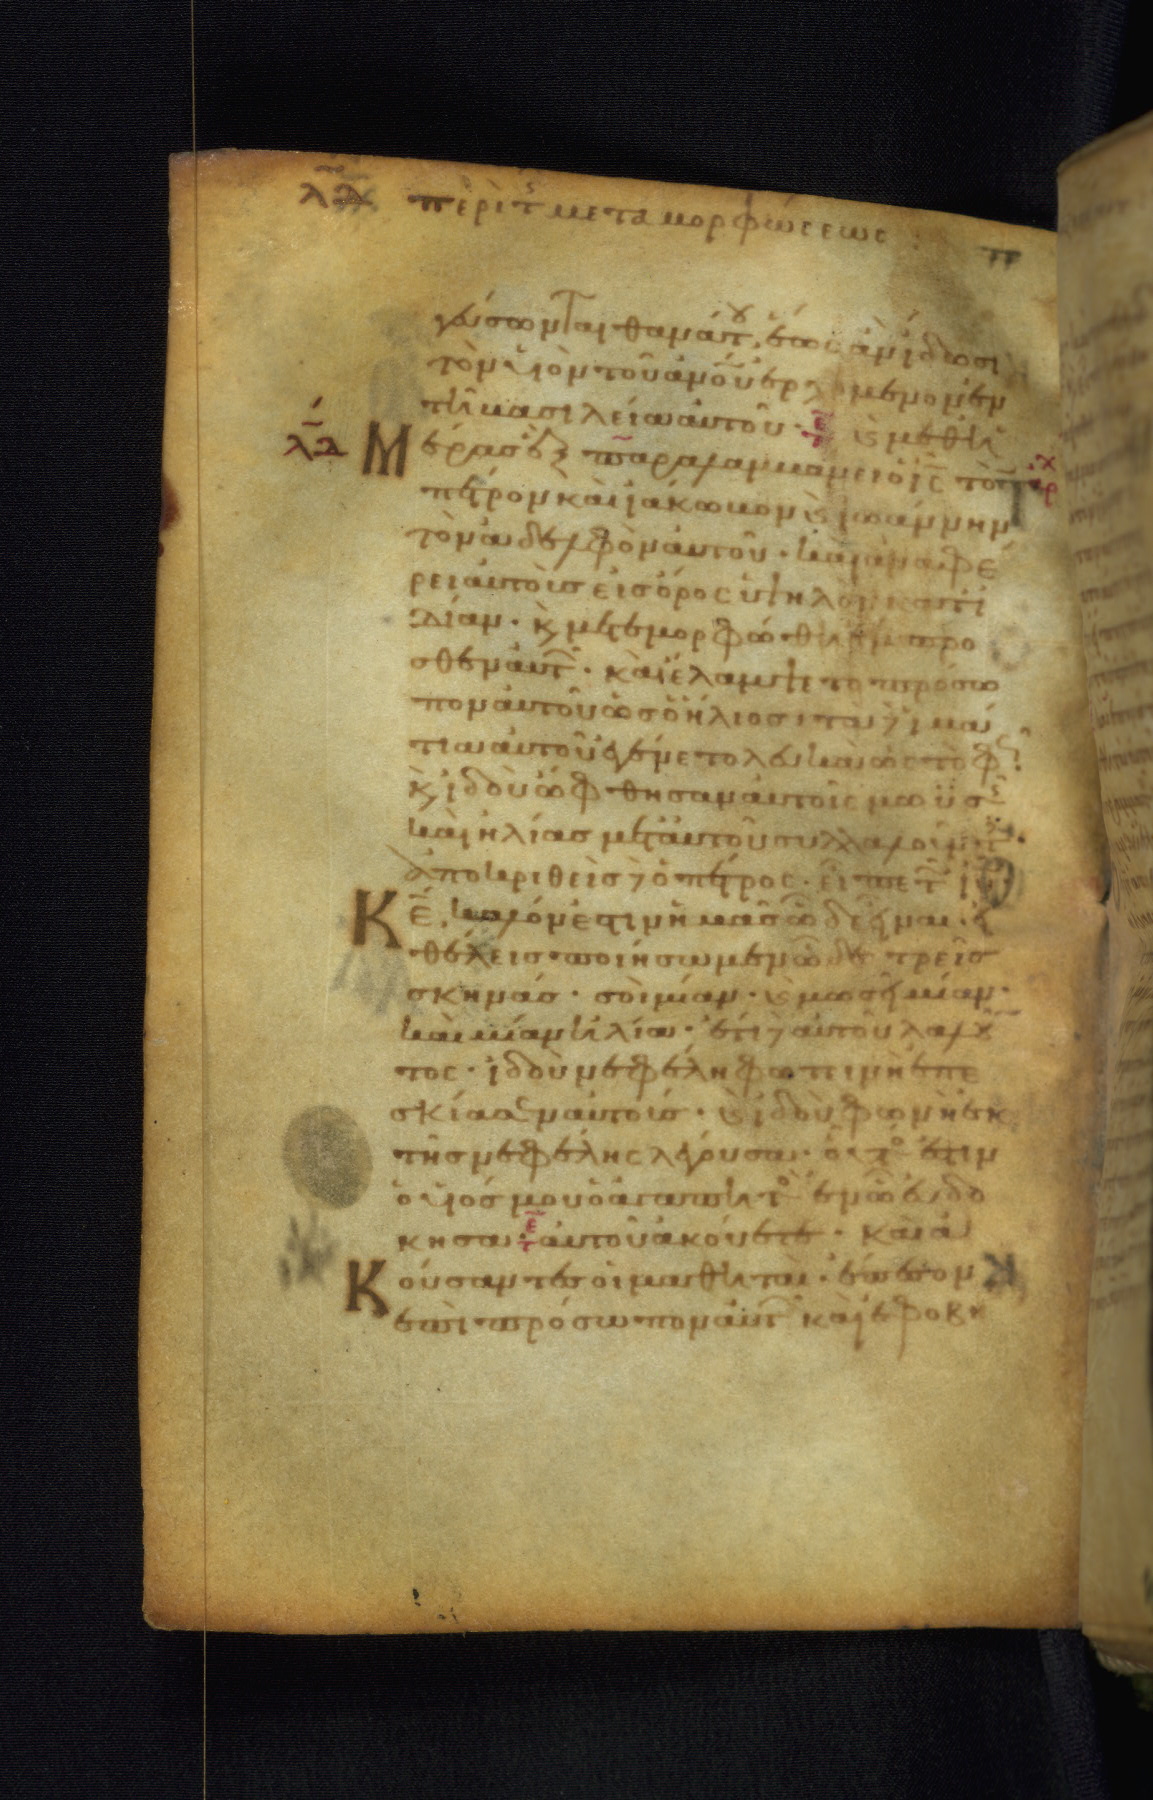 λδ περὶ τς μεταμορφώσεως :
γεύσωνται θανάτου, ἕως ἂν ἴδωσι
τὸν υἱὸν τοῦ ἀνου ἐρχόμενον ἐν
τῆ βασιλεία αὐτοῦ · καὶ μεθ ἡ
λδ Μέρας ἓξ παραλαμβάνει ὁ ις τὸν
πέτρον καὶ ἰάκωβον καὶ ἰωάννην
τὸν ἀδελφὸν αὐτοῦ · καὶ ἀναφέ
ρει αὐτοὺς εἰς ὄρος ὑψηλὸν κατ ἰ
δίαν · καὶ μετεμορφώθη ἔμπρο
σθεν αὐτῶν · καὶ ἔλαμψε τὸ πρόσω
πον αὐτοῦ ὡς ὁ ἥλιος · τὰ δὲ ἱμά
τια αὐτοῦ ἐγένετο λευκὰ ὡς τὸ φῶς
καὶ ἰδοὺ ὤφθησαν αὐτοῖς μωϋσῆς
καὶ ἠλίας μετ αὐτοῦ συλλαλοῦντες ·
ἀποκριθεὶς δὲ ὁ πέτρος · εἶπε τῶ ιυ
Κε, καλόν ἐστιν ἡμᾶς ὧδε εἶναι · εἰ
θέλεις ποιήσωμεν ὧδε τρεῖς
σκηνάς · σοὶ μίαν · καὶ μωσῆ μίαν ·
καὶ μίαν ἠλία · ἔτι δὲ αὐτοῦ λαλοῦν
τος · ἰδοὺ νεφέλη φωτινὴ ἐπε
σκίασεν αὐτούς · καὶ ἰδοὺ φωνὴ ἐκ
τῆς νεφέλης λέγουσα · οὗτός ἐστιν
ὁ υἱός μου ὁ ἀγαπητὸς ἐν ὧ εὐδό
κησα · αὐτοῦ ἀκούετε · καὶ ἀ
Κούσαντες οἱ μαθηταὶ · ἔπεσον
ἐπὶ πρόσωπον αὐτῶν καὶ ἐφοβή